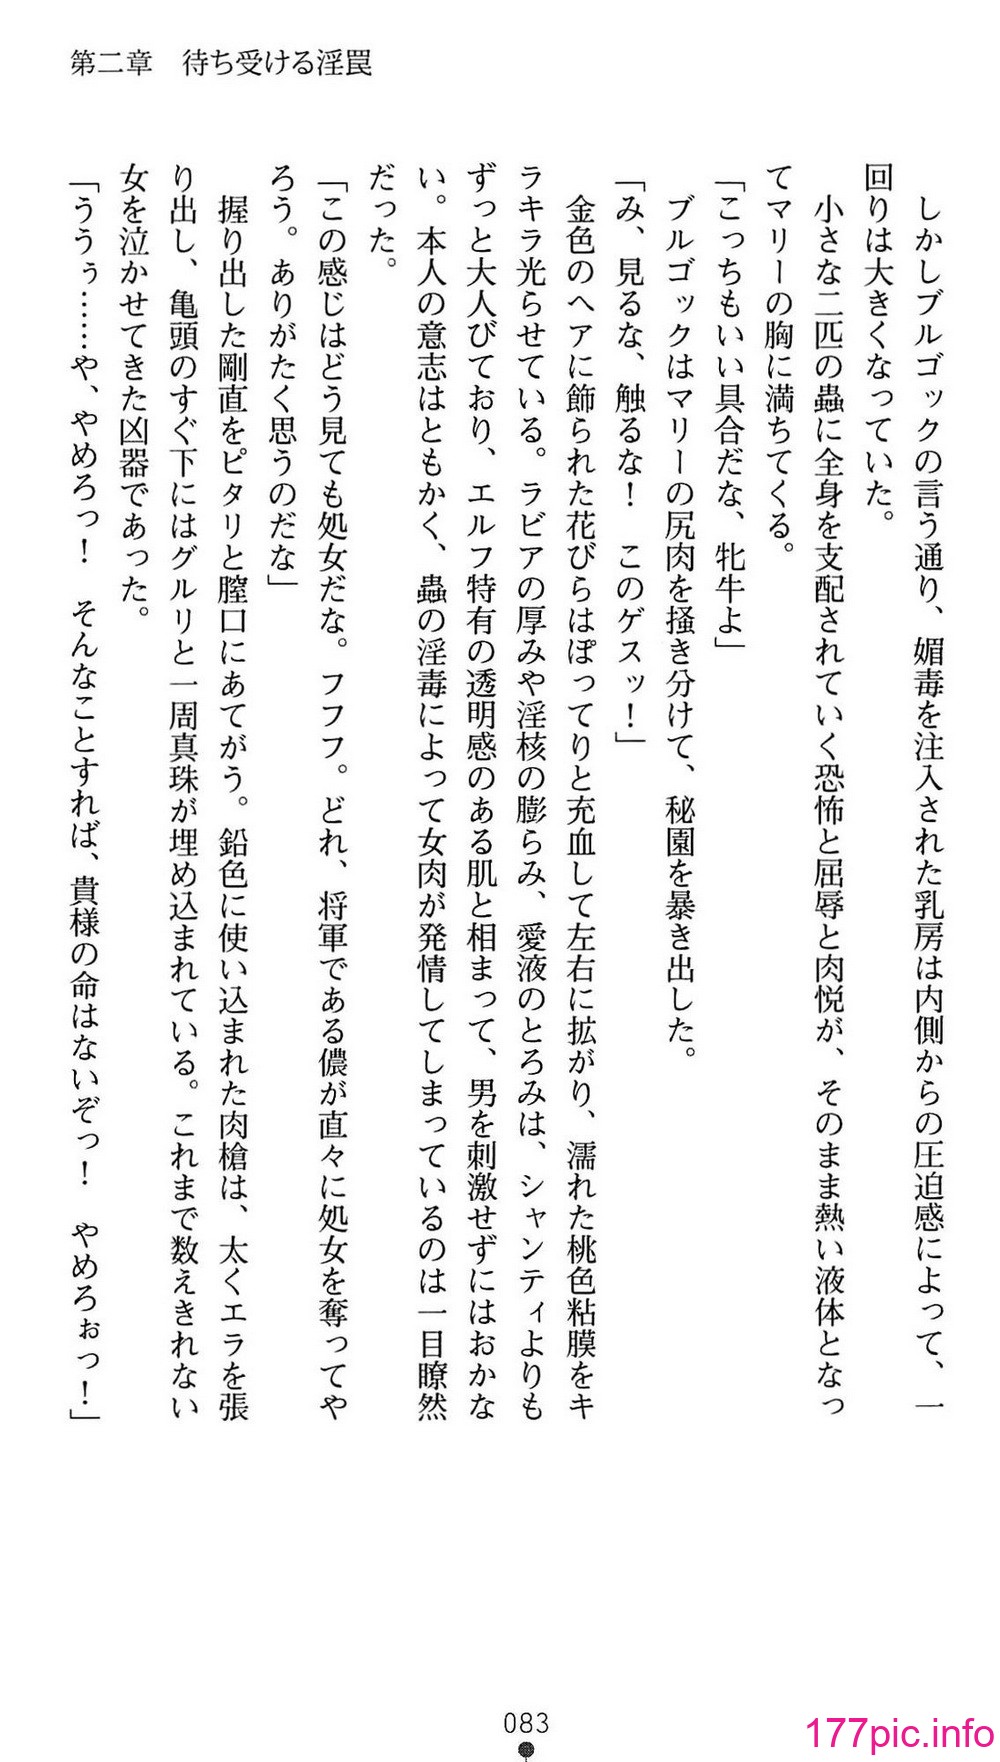 第二章　待ち受ける淫罠
　しかしブルゴックの言う通り、媚毒を注入された乳房は内側からの圧迫感によって、一
回りは大きくなっていた。
　小さな二匹の蟲に全身を支配されていく恐怖と屈辱と肉悦が、そのまま熱い液体となっ
てマリーの胸に満ちてくる。
「こっちもいい具合だな、牝牛よ」
　ブルゴックはマリーの尻肉を掻き分けて、秘園を暴き出した。
「み、見るな、触るな！　このゲスッ！」
　金色のヘアに飾られた花びらはぽってりと充血して左右に拡がり、濡れた桃色粘膜をキ
ラキラ光らせている。ラビアの厚みや淫核の膨らみ、愛液のとろみは、シャンティよりも
ずっと大人びており、エルフ特有の透明感のある肌と相まって、男を刺激せずにはおかな
い。本人の意志はともかく、蟲の淫毒によって女肉が発情してしまっているのは一目瞭然
だった。
「この感じはどう見ても処女だな。フフフ。どれ、将軍である儂が直々に処女を奪ってや
ろう。ありがたく思うのだな」
　握り出した剛直をピタリと膣口にあてがう。鉛色に使い込まれた肉槍は、太くエラを張
り出し、亀頭のすぐ下にはグルリと一周真珠が埋め込まれている。これまで数えきれない
女を泣かせてきた凶器であった。
「ううぅ……や、やめろっ！　そんなことすれば、貴様の命はないぞっ！　やめろぉっ！」
083
177pic.info